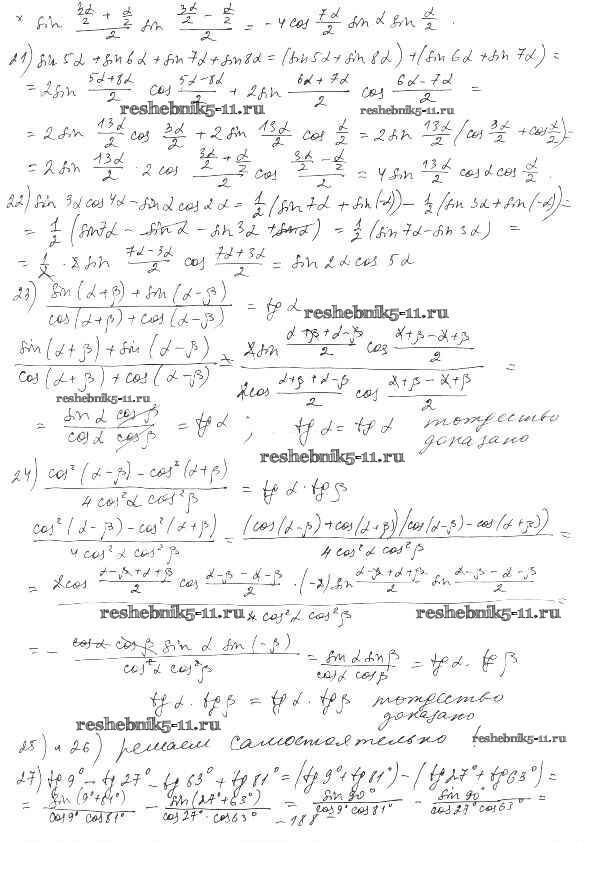 × sin (3α/2 + α/2)/2 sin (3α/2 − α/2)/2 = −4 cos 7α/2 sin α sin α/2 .
21) sin 5α + sin 6α + sin 7α + sin 8α = (sin 5α + sin 8α) + (sin 6α + sin 7α) =
= 2 sin (5α+8α)/2 cos (5α−8α)/2 + 2 sin (6α+7α)/2 cos (6α−7α)/2 =
reshebnik5-11.ru reshebnik5-11.ru
= 2 sin 13α/2 cos 3α/2 + 2 sin 13α/2 cos α/2 = 2 sin 13α/2 (cos 3α/2 + cos α/2) =
= 2 sin 13α/2 · 2 cos (3α/2 + α/2)/2 cos (3α/2 − α/2)/2 = 4 sin 13α/2 cos α cos α/2 .
22) sin 3α cos 4α − sin α cos 2α = 1/2 (sin 7α + sin(−α)) − 1/2 (sin 3α + sin(−α)) =
= 1/2 (sin 7α − sin α − sin 3α + sin α) = 1/2 (sin 7α − sin 3α) =
= 1/2 · 2 sin (7α−3α)/2 cos (7α+3α)/2 = sin 2α cos 5α
23) (sin(α+β) + sin(α−β))/(cos(α+β) + cos(α−β)) = tg α
reshebnik5-11.ru
(sin(α+β) + sin(α−β))/(cos(α+β) + cos(α−β)) = (2 sin (α+β+α−β)/2 cos (α+β−α+β)/2)/(2 cos (α+β+α−β)/2 cos (α+β−α+β)/2) =
reshebnik5-11.ru
= (sin α cos β)/(cos α cos β) = tg α ; tg α = tg α тождество
доказано
reshebnik5-11.ru
24) (cos²(α−β) − cos²(α+β))/(4 cos²α cos²β) = tg α · tg β
(cos²(α−β) − cos²(α+β))/(4 cos²α cos²β) = ((cos(α−β) + cos(α+β))(cos(α−β) − cos(α+β)))/(4 cos²α cos²β) =
= (2 cos (α−β+α+β)/2 cos (α−β−α−β)/2 · (−2) sin (α−β+α+β)/2 sin (α−β−α−β)/2)/(4 cos²α cos²β)
reshebnik5-11.ru reshebnik5-11.ru
= − (cos α cos β sin α sin(−β))/(cos²α cos²β) = (sin α sin β)/(cos α cos β) = tg α · tg β
tg α · tg β = tg α · tg β тождество
доказано
reshebnik5-11.ru
25) и 26) решаем самостоятельно !
reshebnik5-11.ru
27) tg 9° − tg 27° − tg 63° + tg 81° = (tg 9° + tg 81°) − (tg 27° + tg 63°) =
= sin(9°+81°)/(cos 9° cos 81°) − sin(27°+63°)/(cos 27° · cos 63°) = sin 90°/(cos 9° cos 81°) − sin 90°/(cos 27° cos 63°) =
− 188 −